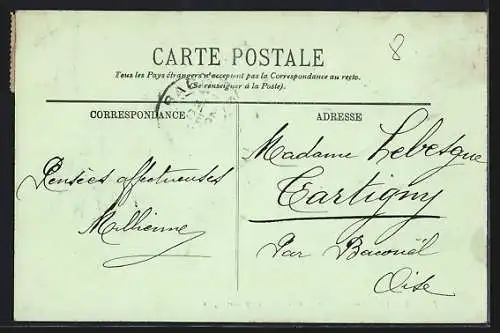 8
CARTE POSTALE
Tous les Pays étrangers n'acceptent pas la Correspondance au recto.
(Se renseigner à la Poste).
CORRESPONDANCE
ADRESSE
Pensées affectueuses
Madame Lebesgue
Tartigny
Par Bacouël
Oise